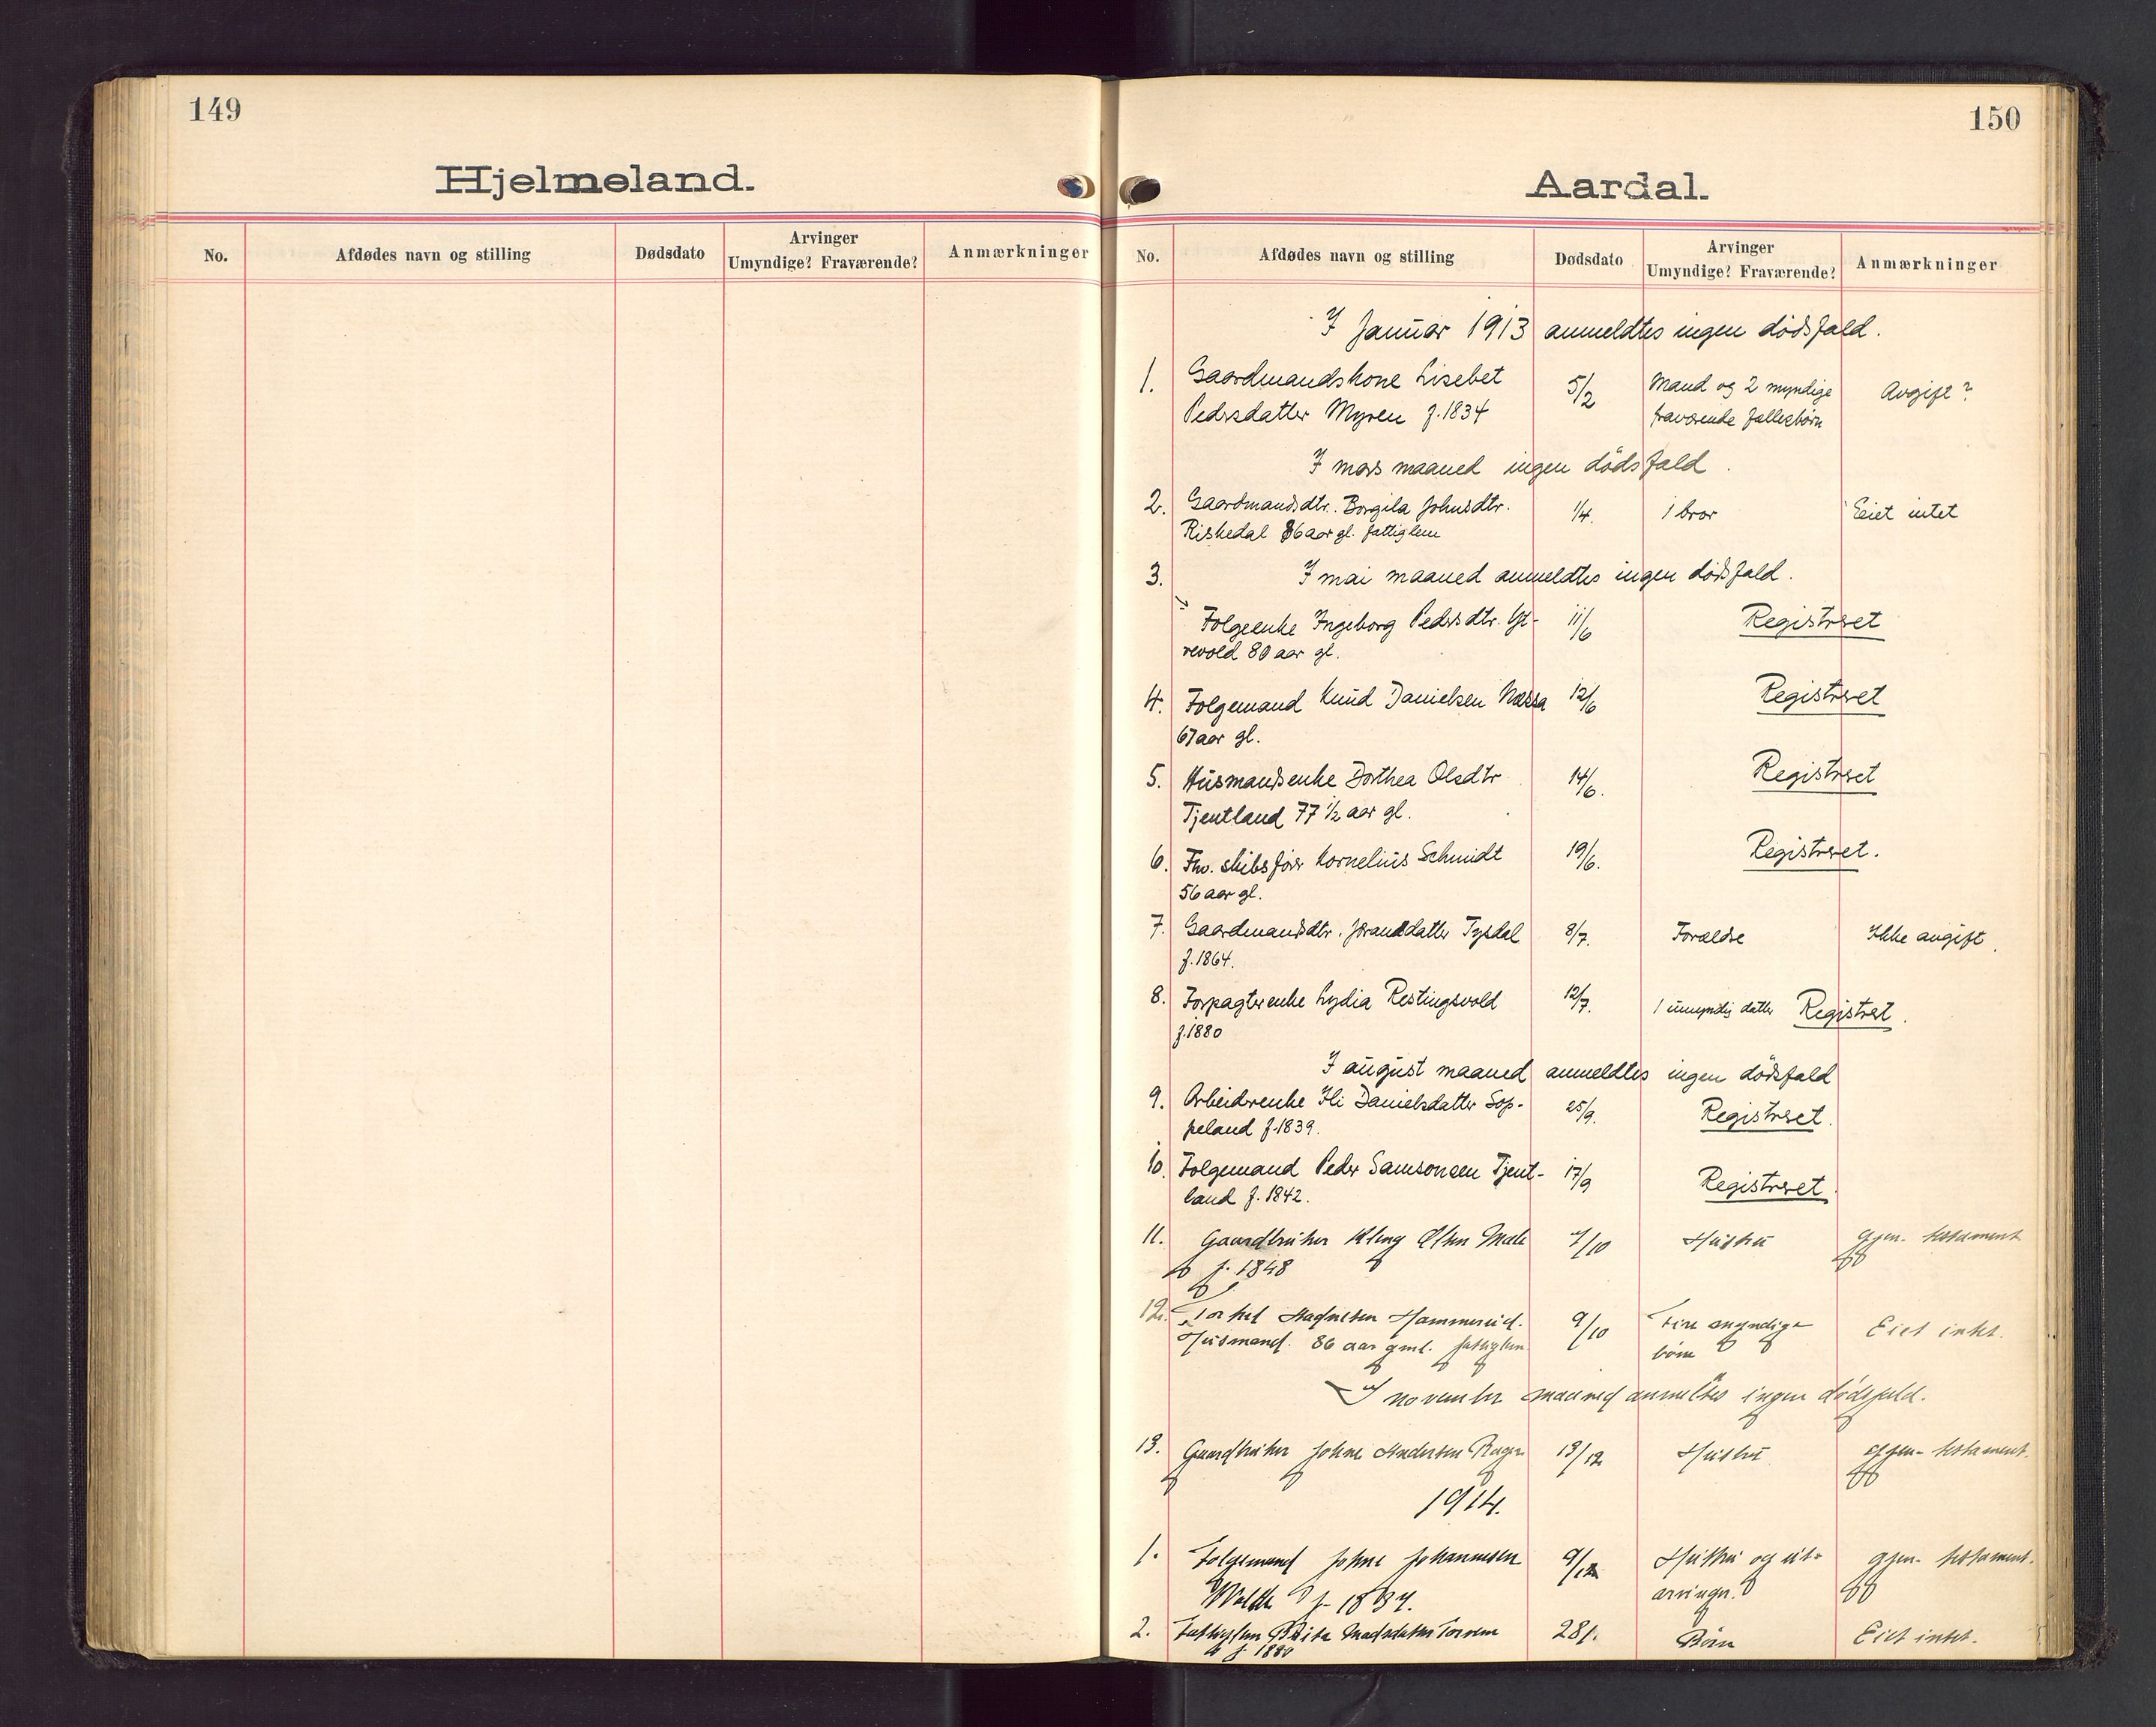 149
Hjelmeland.
No. Afdødes navn og stilling Dødsdato Arvinger Umyndige? Fraværende? Anmærkninger
150
Aardal.
No. Afdødes navn og stilling Dødsdato Arvinger Umyndige? Fraværende? Anmærkninger
I Januar 1913 anmeldtes ingen dödsfald.
1. Gaardmandskone Lisebet 5/2 Mand og 2 myndige Avgift?
Pedersdatter Myren f. 1834 fraværende fællesbörn
I mars maaned ingen dödsfald.
2. Gaardmandsdtr. Borgila Johnsdtr. 1/4. 1 bror Eiet intet
Riskedal 86 aar gl. fattiglem
3. I mai maaned anmeldtes ingen dödsfald.
Folgeenke Ingeborg Pedersdtr. 11/6 Registreret
revold 80 aar gl.
4. Folgemand Knud Danielsen Nessa 12/6 Registreret
67 aar gl.
5. Husmandsenke Dorthea Olsdtr 14/6. Registreret
Tjentland 77 1/2 aar gl.
6. Fhv. skibsförer Kornelius Schmidt 19/6. Registreret.
56 aar gl.
7. Gaardmandsdtr. Tysdal 8/7. Forældre Ikke avgift.
f. 1864.
8. Forpagterenke Lydia Restingsvold 12/7. 1 umyndig datter Registreret.
f. 1880
I august maaned anmeldtes ingen dödsfald
9. Arbeiderenke Ili Danielsdatter Sop- 25/9. Registreret.
peland f. 1839.
10. Folgemand Peder Samsonsen Tjent- 17/9 Registreret.
land f. 1842.
11. Gaardbruker Olsen Mæle 4/10 Hustru gjen. testament
f. 1848
12. Torkel Hammereid. 9/10 Fire myndige Eiet intet.
Husmand. 86 aar gml. fattiglem börn
I november maaned anmeltes ingen dödsfald.
13. Gaardbruker Johne 13/12 Hustru gjen. testament.
1914.
1. Folgemand Johne Johannesen 9/12 Hustru og ut- gjen. testament.
f. 1834. arvinger.
2. Fattiglem Brita Madsdatter 28/1. Börn Eiet intet.
f. 1880